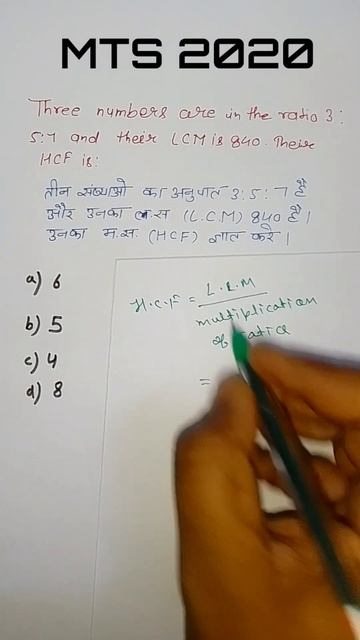 MTS 2020
Three numbers are in the ratio 3:
5:7 and their LCM is 840. Their
HCF is:
तीन संख्याओ का अनुपात 3:5:7 है
और उनका ल.स (L.C.M) 840 है।
उनका म.स. (HCF) ज्ञात करे।
a) 6
b) 5
c) 4
d) 8
H.C.F = L.C.M
multiplication
of ratio
=